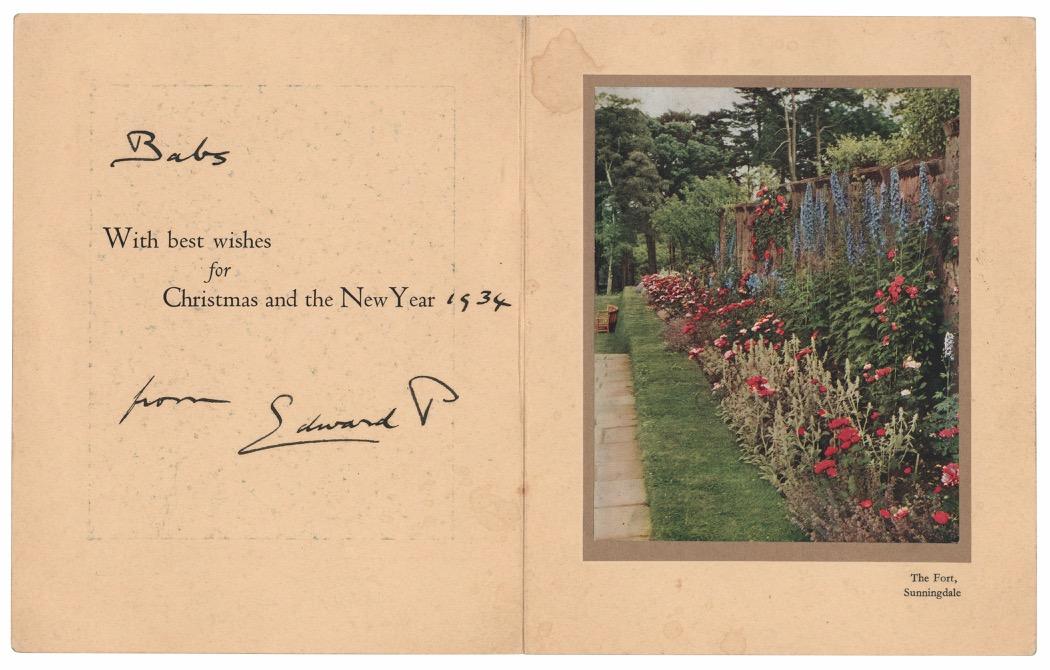 Babs
With best wishes
for
Christmas and the New Year 1934
from Edward P
The Fort,
Sunningdale